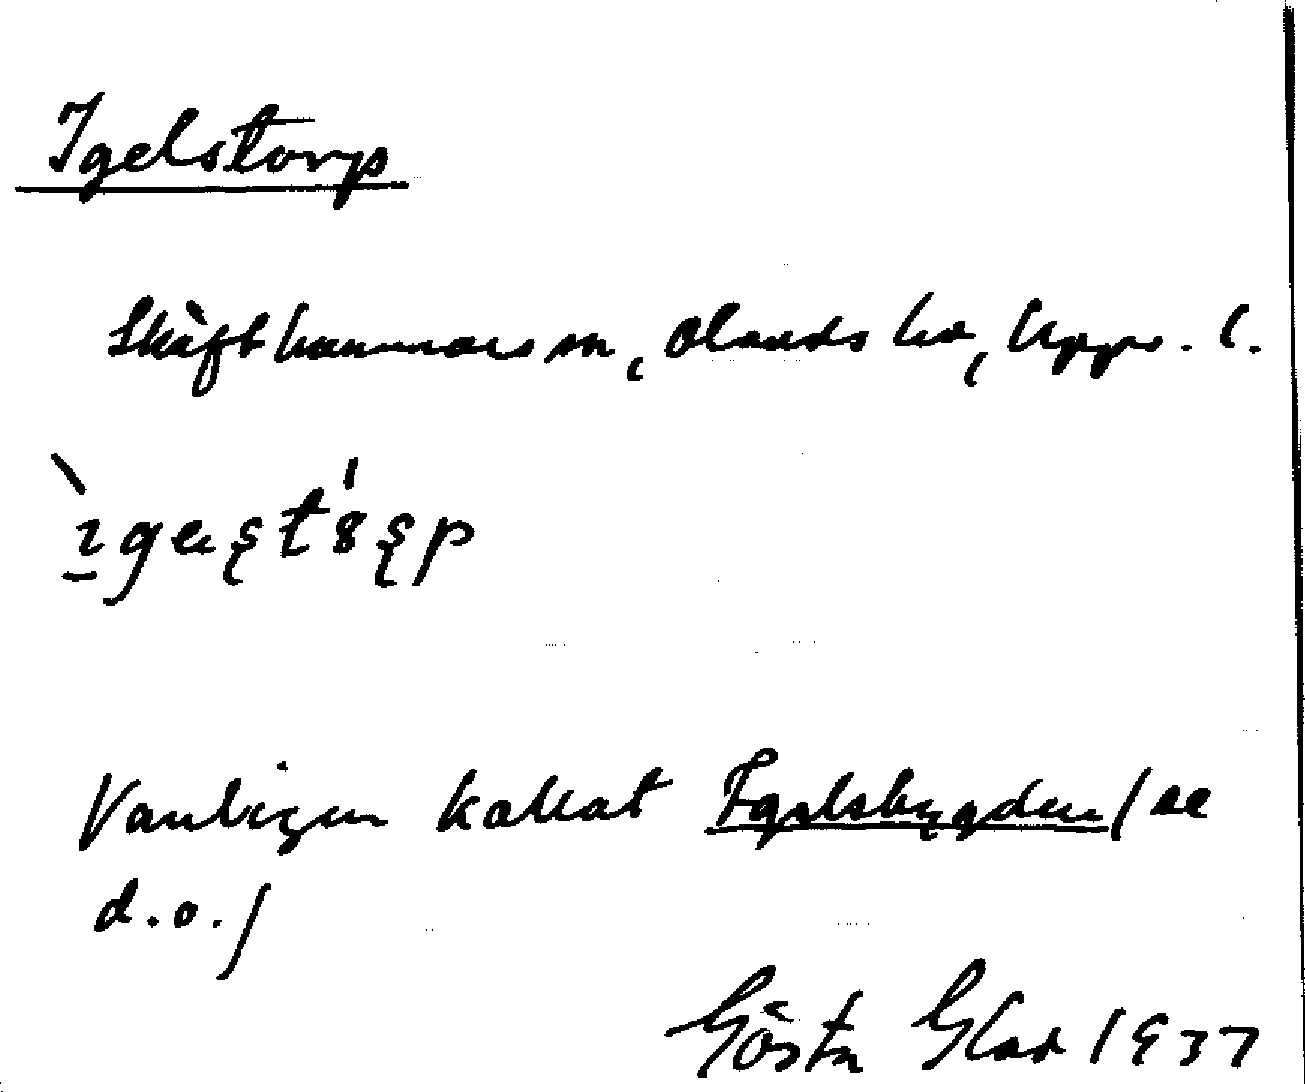 Igelstorp
Skäfthammars sn, Olands hd, Upps. l.
Vanligen kallat Igelsbygden (se
d.o.)
Gösta Glad 1937